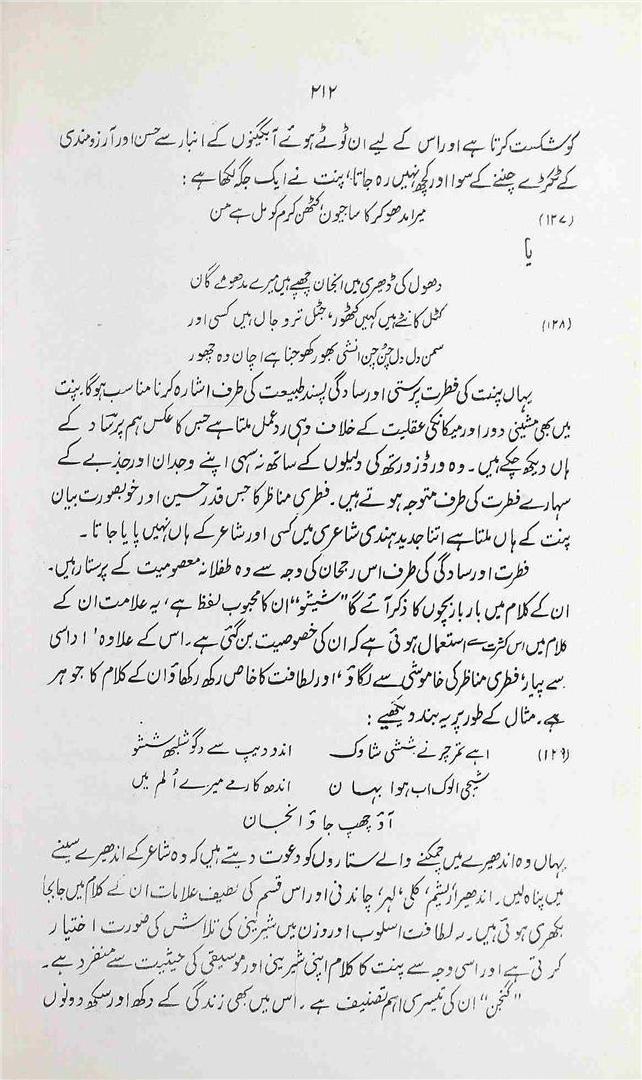 ۲۱۲
کو شکست کرتا ہے اور اس کے لیے ان ٹوٹے ہوئے آبگینوں کے انبار سے حسن اور آرزو مندی
کے ٹکڑے چننے کے سوا اور کچھ نہیں رہ جاتا، پنت نے ایک جگہ لکھا ہے :
(۱۲۷) میرا مدھوکر کا سا جیون، کٹھن کرم کومل ہے من
یا
دھول کی ڈھیری میں انجان چھپے ہیں میرے مدھومے گان
(۱۲۸) کٹل کانٹے ہیں کہیں کٹھور، جٹل ترو جال ہیں کسی اور
سمن دل دل چن چن نشی بھور کھوجنا ہے اجان وہ چھور
یہاں پنت کی فطرت پرستی اور سادگی پسند طبیعت کی طرف اشارہ کرنا مناسب ہوگا۔ پنت
میں بھی مشینی دور اور میکانکی عقلیت کے خلاف وہی ردعمل ملتا ہے جس کا عکس ہم پرساد کے
ہاں دیکھ چکے ہیں۔ وہ ورڈزورتھ کی دلیلوں کے ساتھ نہ سہی اپنے وجدان اور جذبے کے
سہارے فطرت کی طرف متوجہ ہوتے ہیں۔ فطری مناظر کا جس قدر حسین اور خوبصورت بیان
پنت کے ہاں ملتا ہے اتنا جدید ہندی شاعری میں کسی اور شاعر کے ہاں نہیں پایا جاتا۔
فطرت اور سادگی کی طرف اس رجحان کی وجہ سے وہ طفلانہ معصومیت کے پرستار ہیں۔
ان کے کلام میں بار بار بچوں کا ذکر آئے گا "شیشو" ان کا محبوب لفظ ہے، یہ علامت ان کے
کلام میں اس کثرت سے استعمال ہوئی ہے کہ ان کی خصوصیت بن گئی ہے۔ اس کے علاوہ 'اداسی
سے پیار' فطری مناظر کی خاموشی سے لگاؤ' اور لطافت کا خاص رکھ رکھاؤ ان کے کلام کا جوہر
ہے۔ مثال کے طور پر یہ بند دیکھیے :
(۱۲۹) اے نشی شاوک اندد دیپ سے
الوک اب ہوا بہان اندھ کار مے میرے میں
آؤ چھپ جاؤ انجان
یہاں وہ اندھیرے میں چمکنے والے ستاروں کو دعوت دیتے ہیں کہ وہ شاعر کے اندھیرے سینے
میں پناہ لیں۔ اندھیرا، ریشم، کلی، لہر، چاندنی اور اس قسم کی لطیف علامات ان کے کلام میں جابجا
بکھری ہوئی ہیں۔ یہ لطافت اسلوب اور وزن میں شیرینی کی تلاش کی صورت اختیار
کرتی ہے اور اسی وجہ سے پنت کا کلام اپنی شیرینی اور موسیقی کی حیثیت سے منفرد ہے۔
"گنجن" ان کی تیسری اہم تصنیف ہے۔ اس میں بھی زندگی کے دکھ اور سکھ دونوں